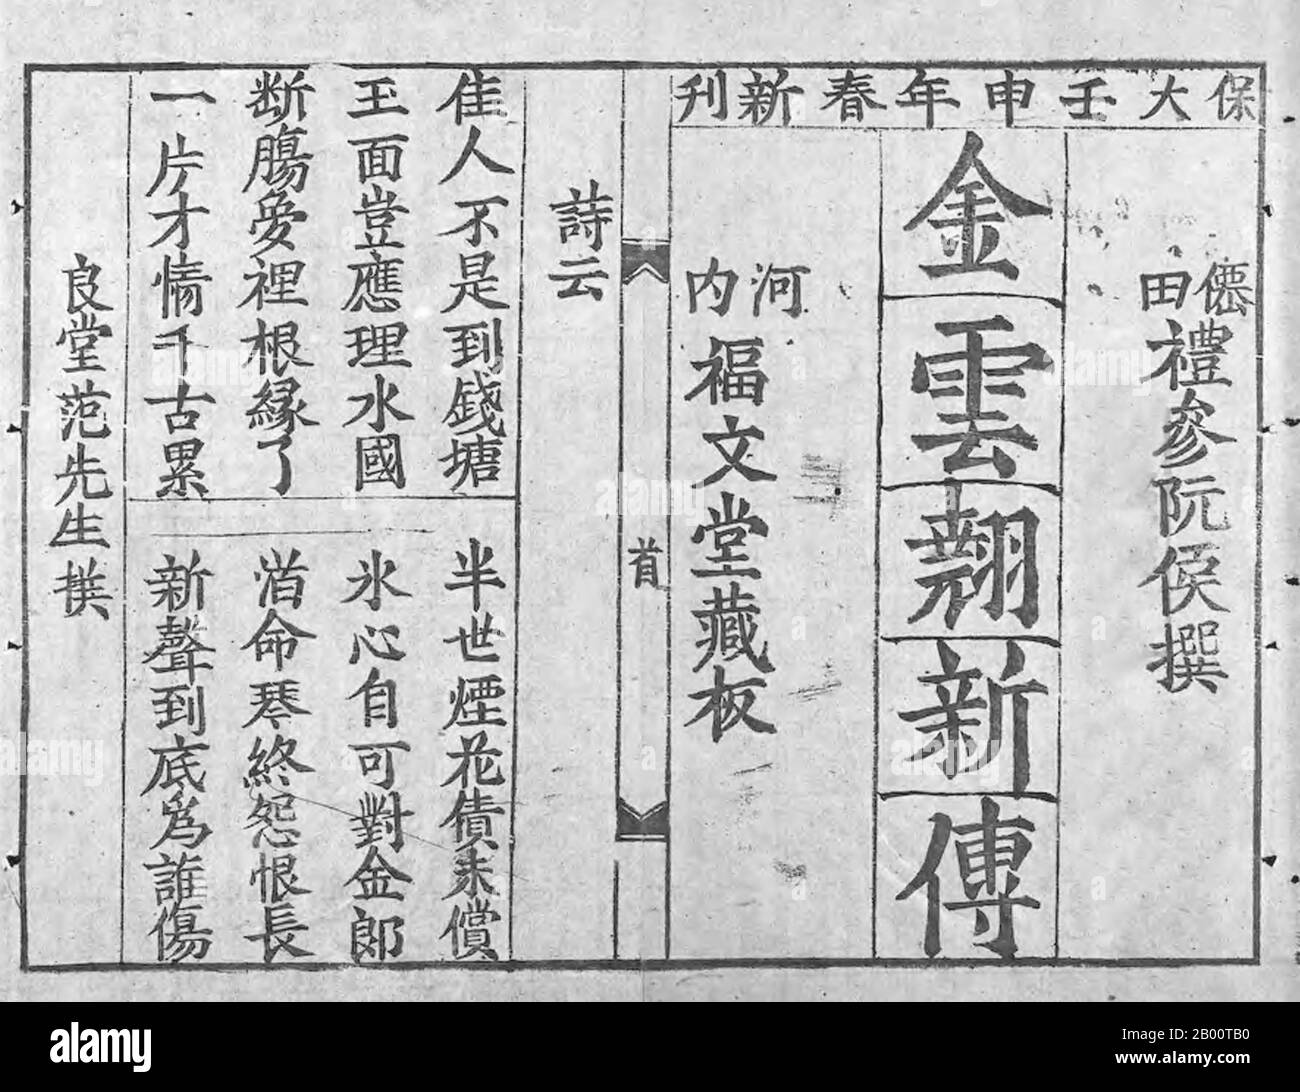 保大壬申年春新刊
僊田禮參阮侯撰
金雲翹新傳
河内福文堂藏板
首
詩云
佳人不是到錢塘
半世煙花債未償
玉面豈應理水國
氷心自可對金郎
断腸夢裡根緣了
命琴終怨恨長
一片才情千古累
新聲到底為誰傷
良堂范先生撰
alamy
Image ID: 2B00TB0
www.alamy.com